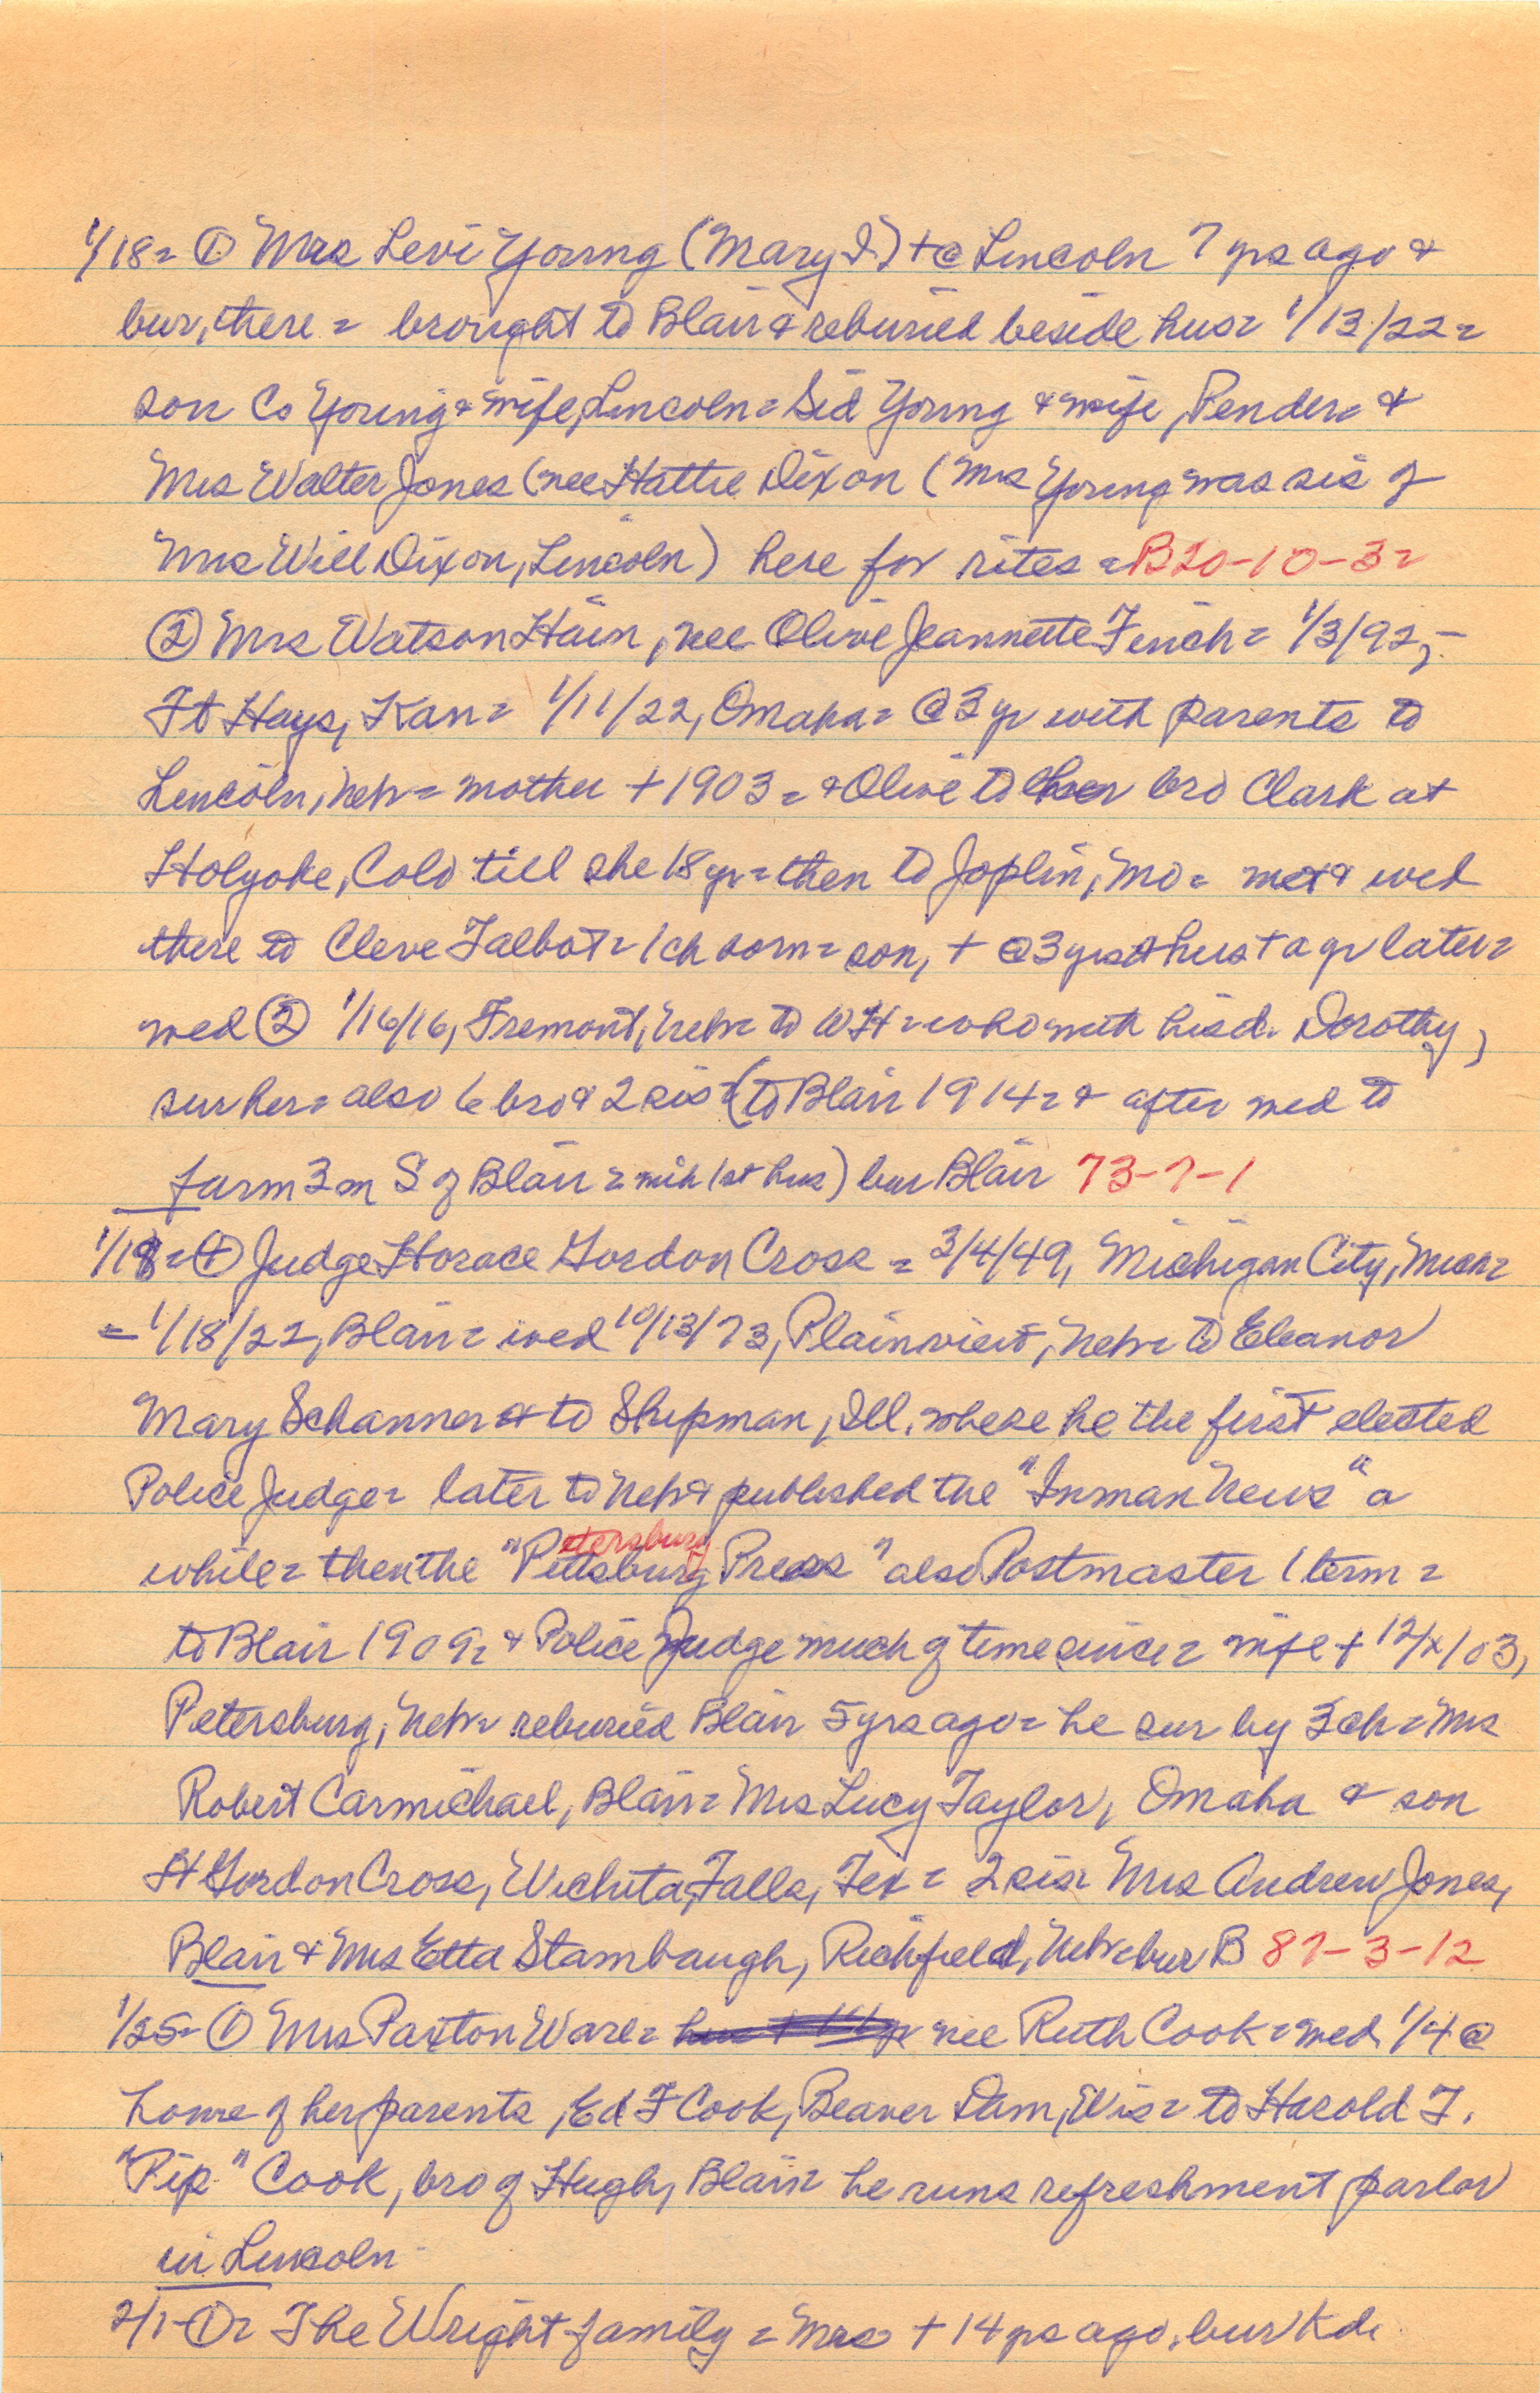 1/18= ① Mrs Levi Young (Mary I) + @ Lincoln 7 yrs ago &
bur, there = brought to Blair & reburied beside hus= 1/13/22=
son Co Young & wife, Lincoln= Sid Young & wife, Pender= &
Mrs Walter Jones (nee Hattie Dixon (Mrs Young was sis of
Mrs Will Dixon, Lincoln) here for rites = B20-10-3=
② Mrs Watson Hain, nee Olive Jeannette Finch= 1/3/92,-
Ft Hays, Kan= 1/11/22, Omaha= @ 3 yr with parents to
Lincoln, Nebr= mother + 1903= & Olive to her bro Clark at
Holyoke, Colo till she 18 yr= then to Joplin, Mo= met & wed
there to Cleve Talbot= 1 ch born= son, + @ 3 yrs & hus + a yr later=
wed ② 1/16/16, Fremont, Nebr= to WH= who with his d. Dorothy,
sur her= also 6 bro & 2 sis (to Blair 1914= & after wed to
farm 3 m S of Blair= with 1st hus) bur Blair 73-7-1
1/18= ④ Judge Horace Gordon Cross = 3/4/49, Michigan City, Mich=
= 1/18/22, Blair= wed 10/13/73, Plainview, Nebr= to Eleanor
Mary Schanner & to Shipman, Ill. where he the first elected
Police Judge= later to Nebr & published the "Inman News" a
while= then the "Pittsburg Press" also Postmaster 1 term=
etersburg
to Blair 1909= & Police Judge much of time since= wife + 12/x/03,
Petersburg, Nebr= reburied Blair 5 yrs ago= he sur by 3 ch= Mrs
Robert Carmichael, Blair= Mrs Lucy Taylor, Omaha & son
H Gordon Cross, Wichita Falls, Tex= 2 sis= Mrs Andrew Jones,
Blair & Mrs Etta Stambaugh, Richfield, Nebr= bur B 87-3-12
1/25= ① Mrs Paxton Ware= nee Ruth Cook= wed 1/4 @
home of her parents, Ed F Cook, Beaver Dam, Wis= to Harold F.
"Pip" Cook, bro of Hugh, Blair= he runs refreshment parlor
in Lincoln
2/1- ①= The Wright family= Mrs + 14 yrs ago, bur Kd.